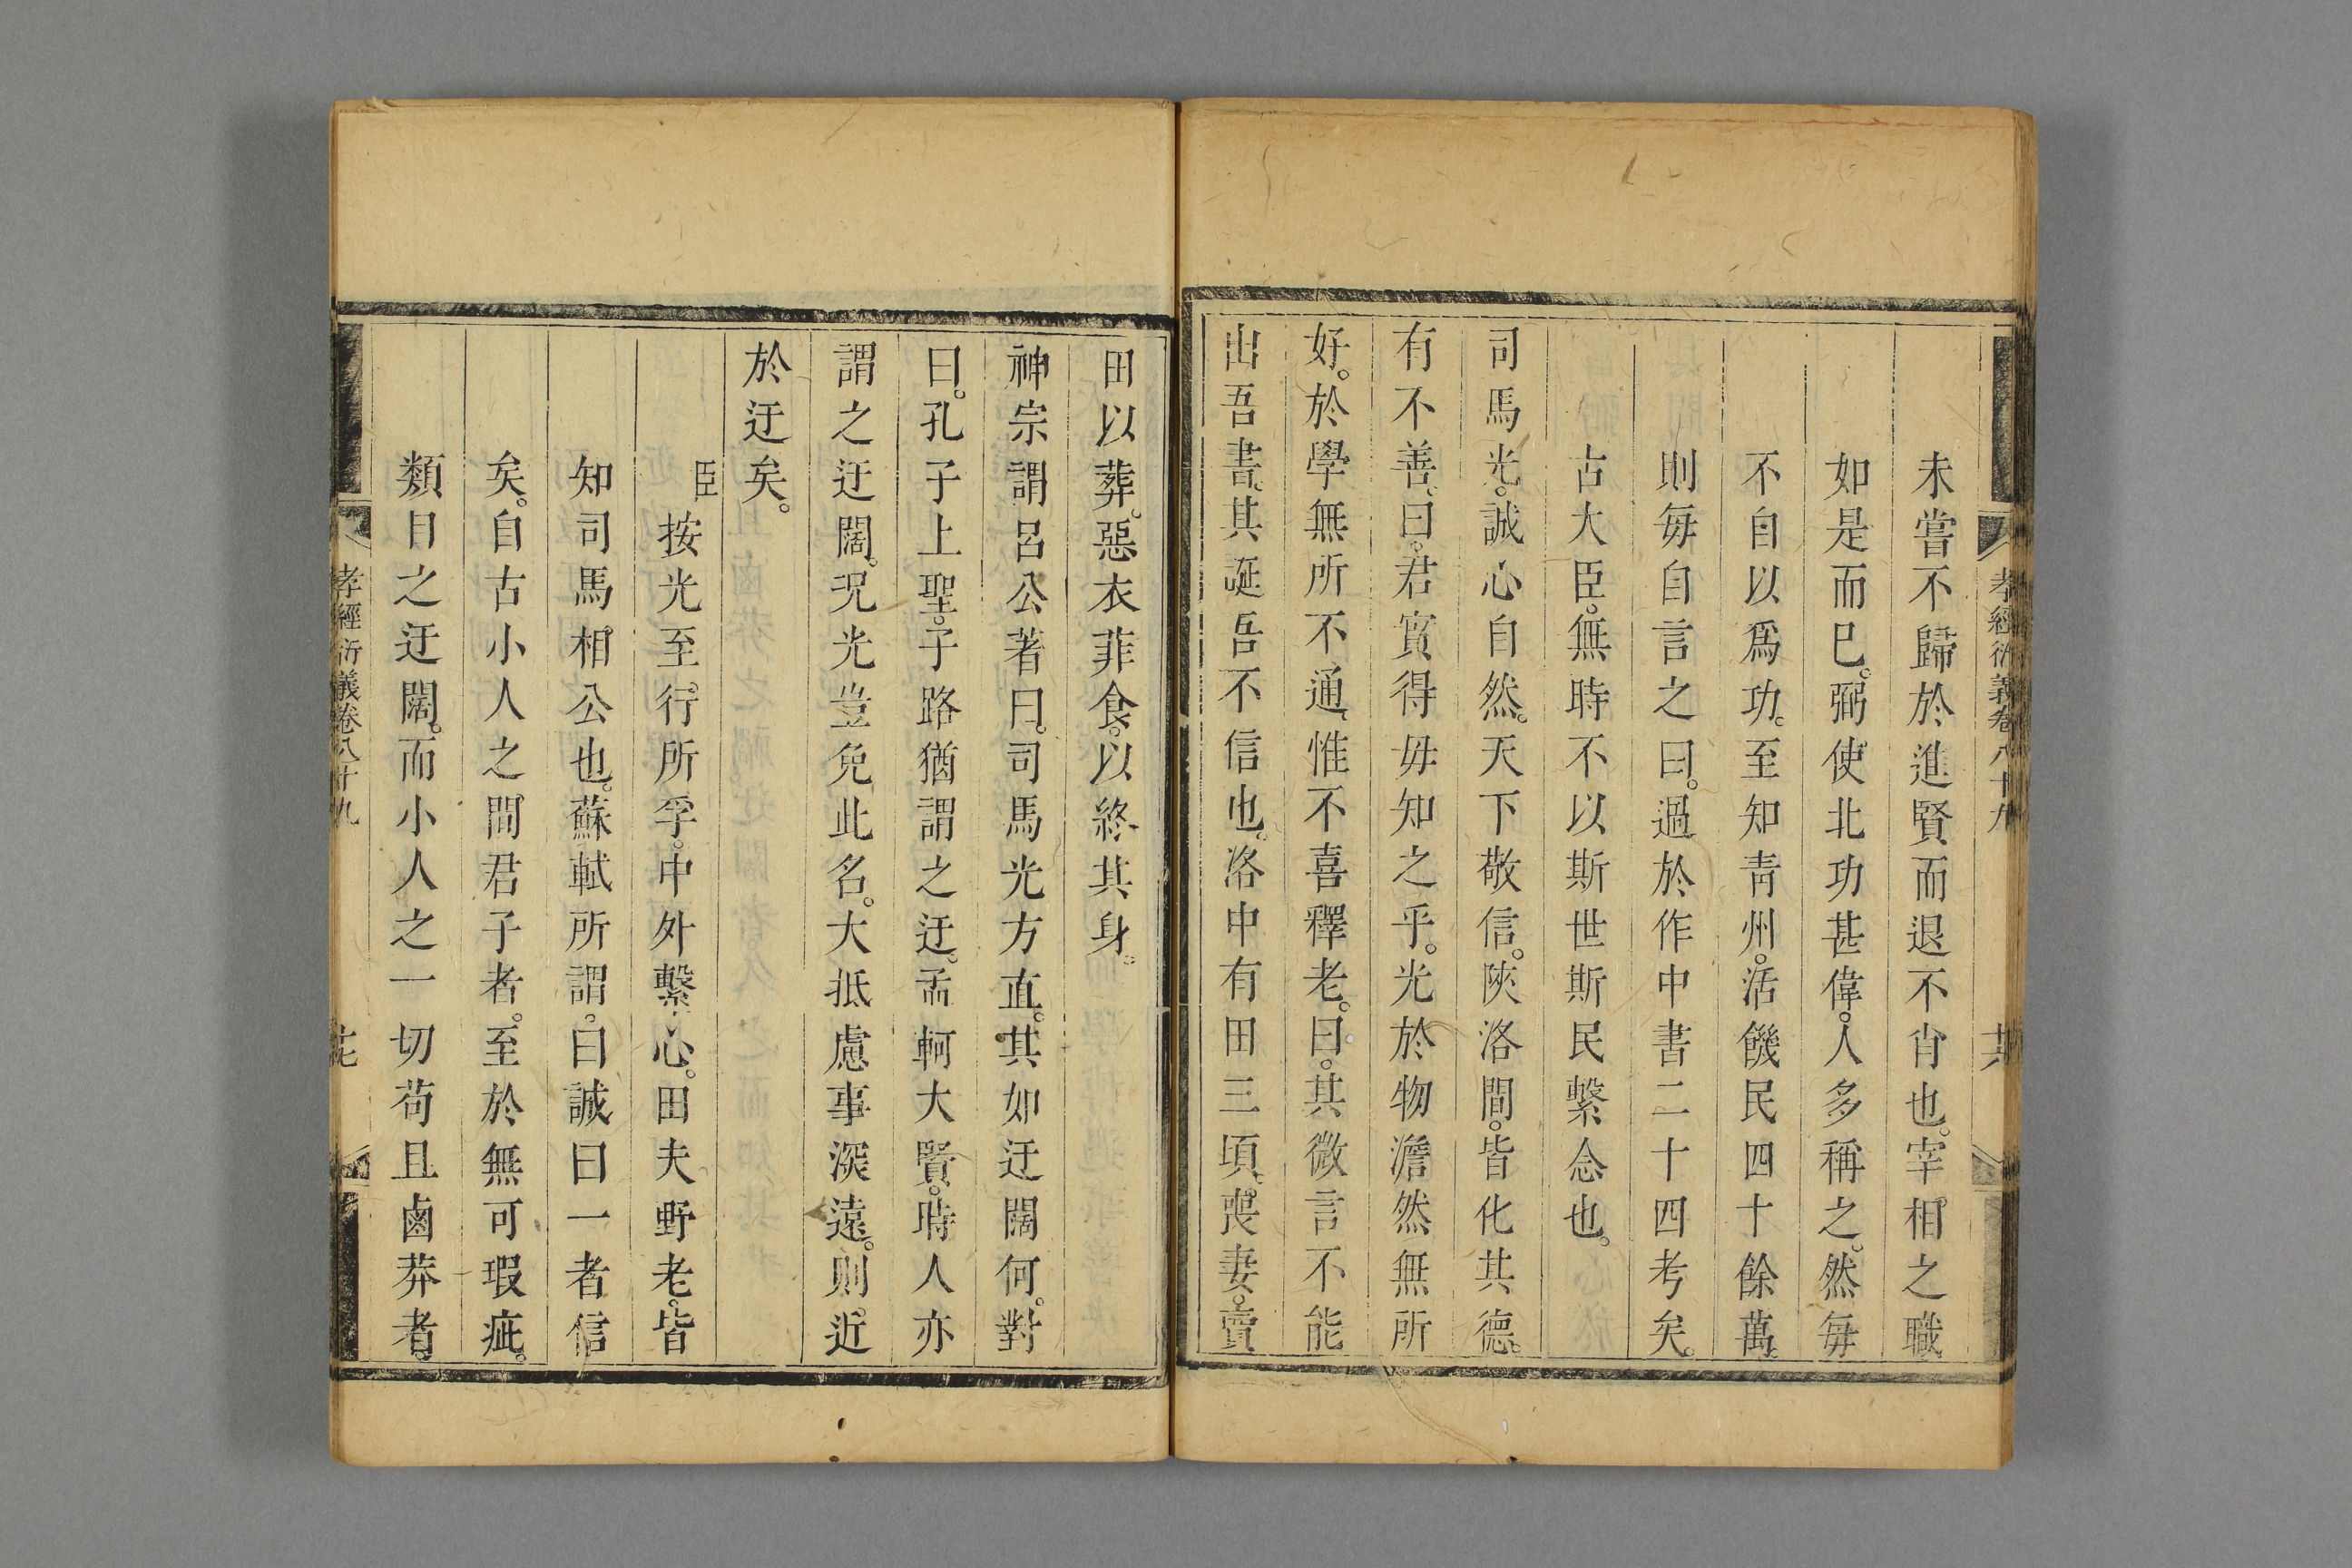 孝經衍義卷八十九
共
未嘗不歸於進賢而退不肖也。宰相之職
如是而巳。弼使北功甚偉。人多稱之。然毎
不自以爲功。至知青州。活饑民四十餘萬。
則毎自言之曰。過於作中書二十四考矣。
古大臣。無時不以斯世斯民繫念也。
司馬光。誠心自然。天下敬信。陝洛間。皆化其德。
有不善、曰。君實得毋知之乎。光於物澹然無所
好。於學無所不通、惟不喜釋老。曰。其微言不能
出吾書。其誕吾不信也。洛中有田三頃。喪妻。賣
田以葬。惡衣菲食。以終其身。
神宗謂呂公著曰。司馬光方直。其如迂闊何。對
曰。孔子上聖。子路猶謂之迂。孟軻大賢。時人亦
謂之迂闊。况光豈免此名。大抵慮事深遠。則近
於迂矣。
臣按光至行所孚。中外繫心。田夫野老。皆
知司馬相公也。蘇軾所謂。曰誠曰一者信
矣。自古小人之間君子者。至於無可瑕疵。
類目之迂闊。而小人之一切苟且鹵莽者。
孝經衍義卷八十九